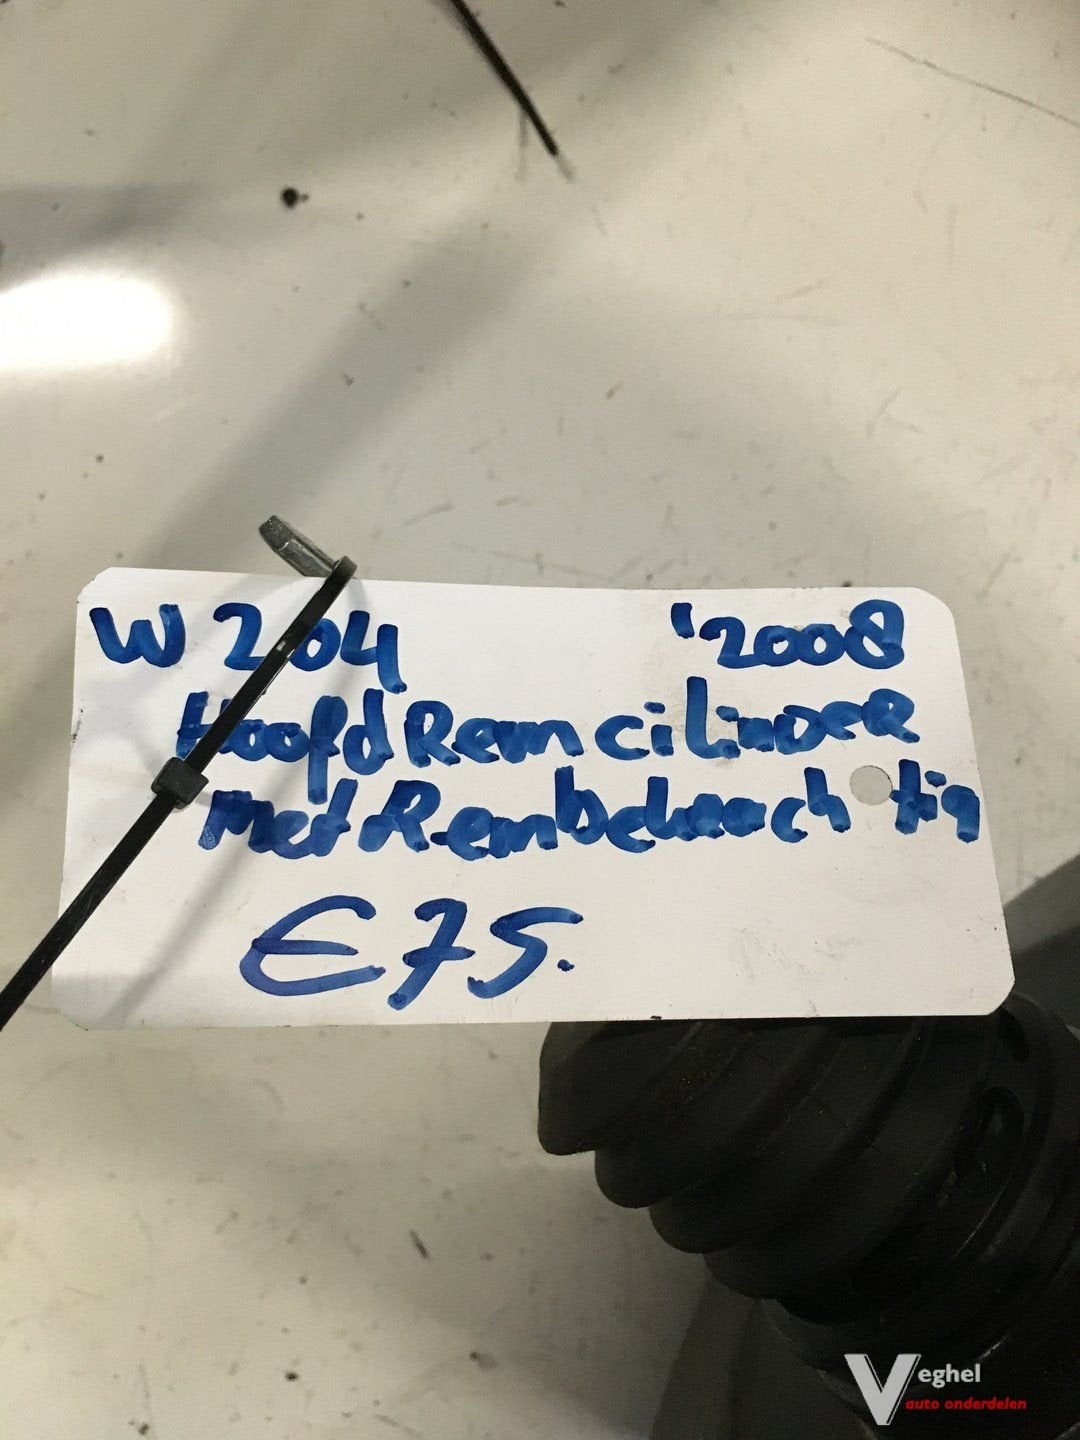 W 204 '2008
HoofdRemcilinder
met Rembekrachtig
€75.
Veghel
auto onderdelen